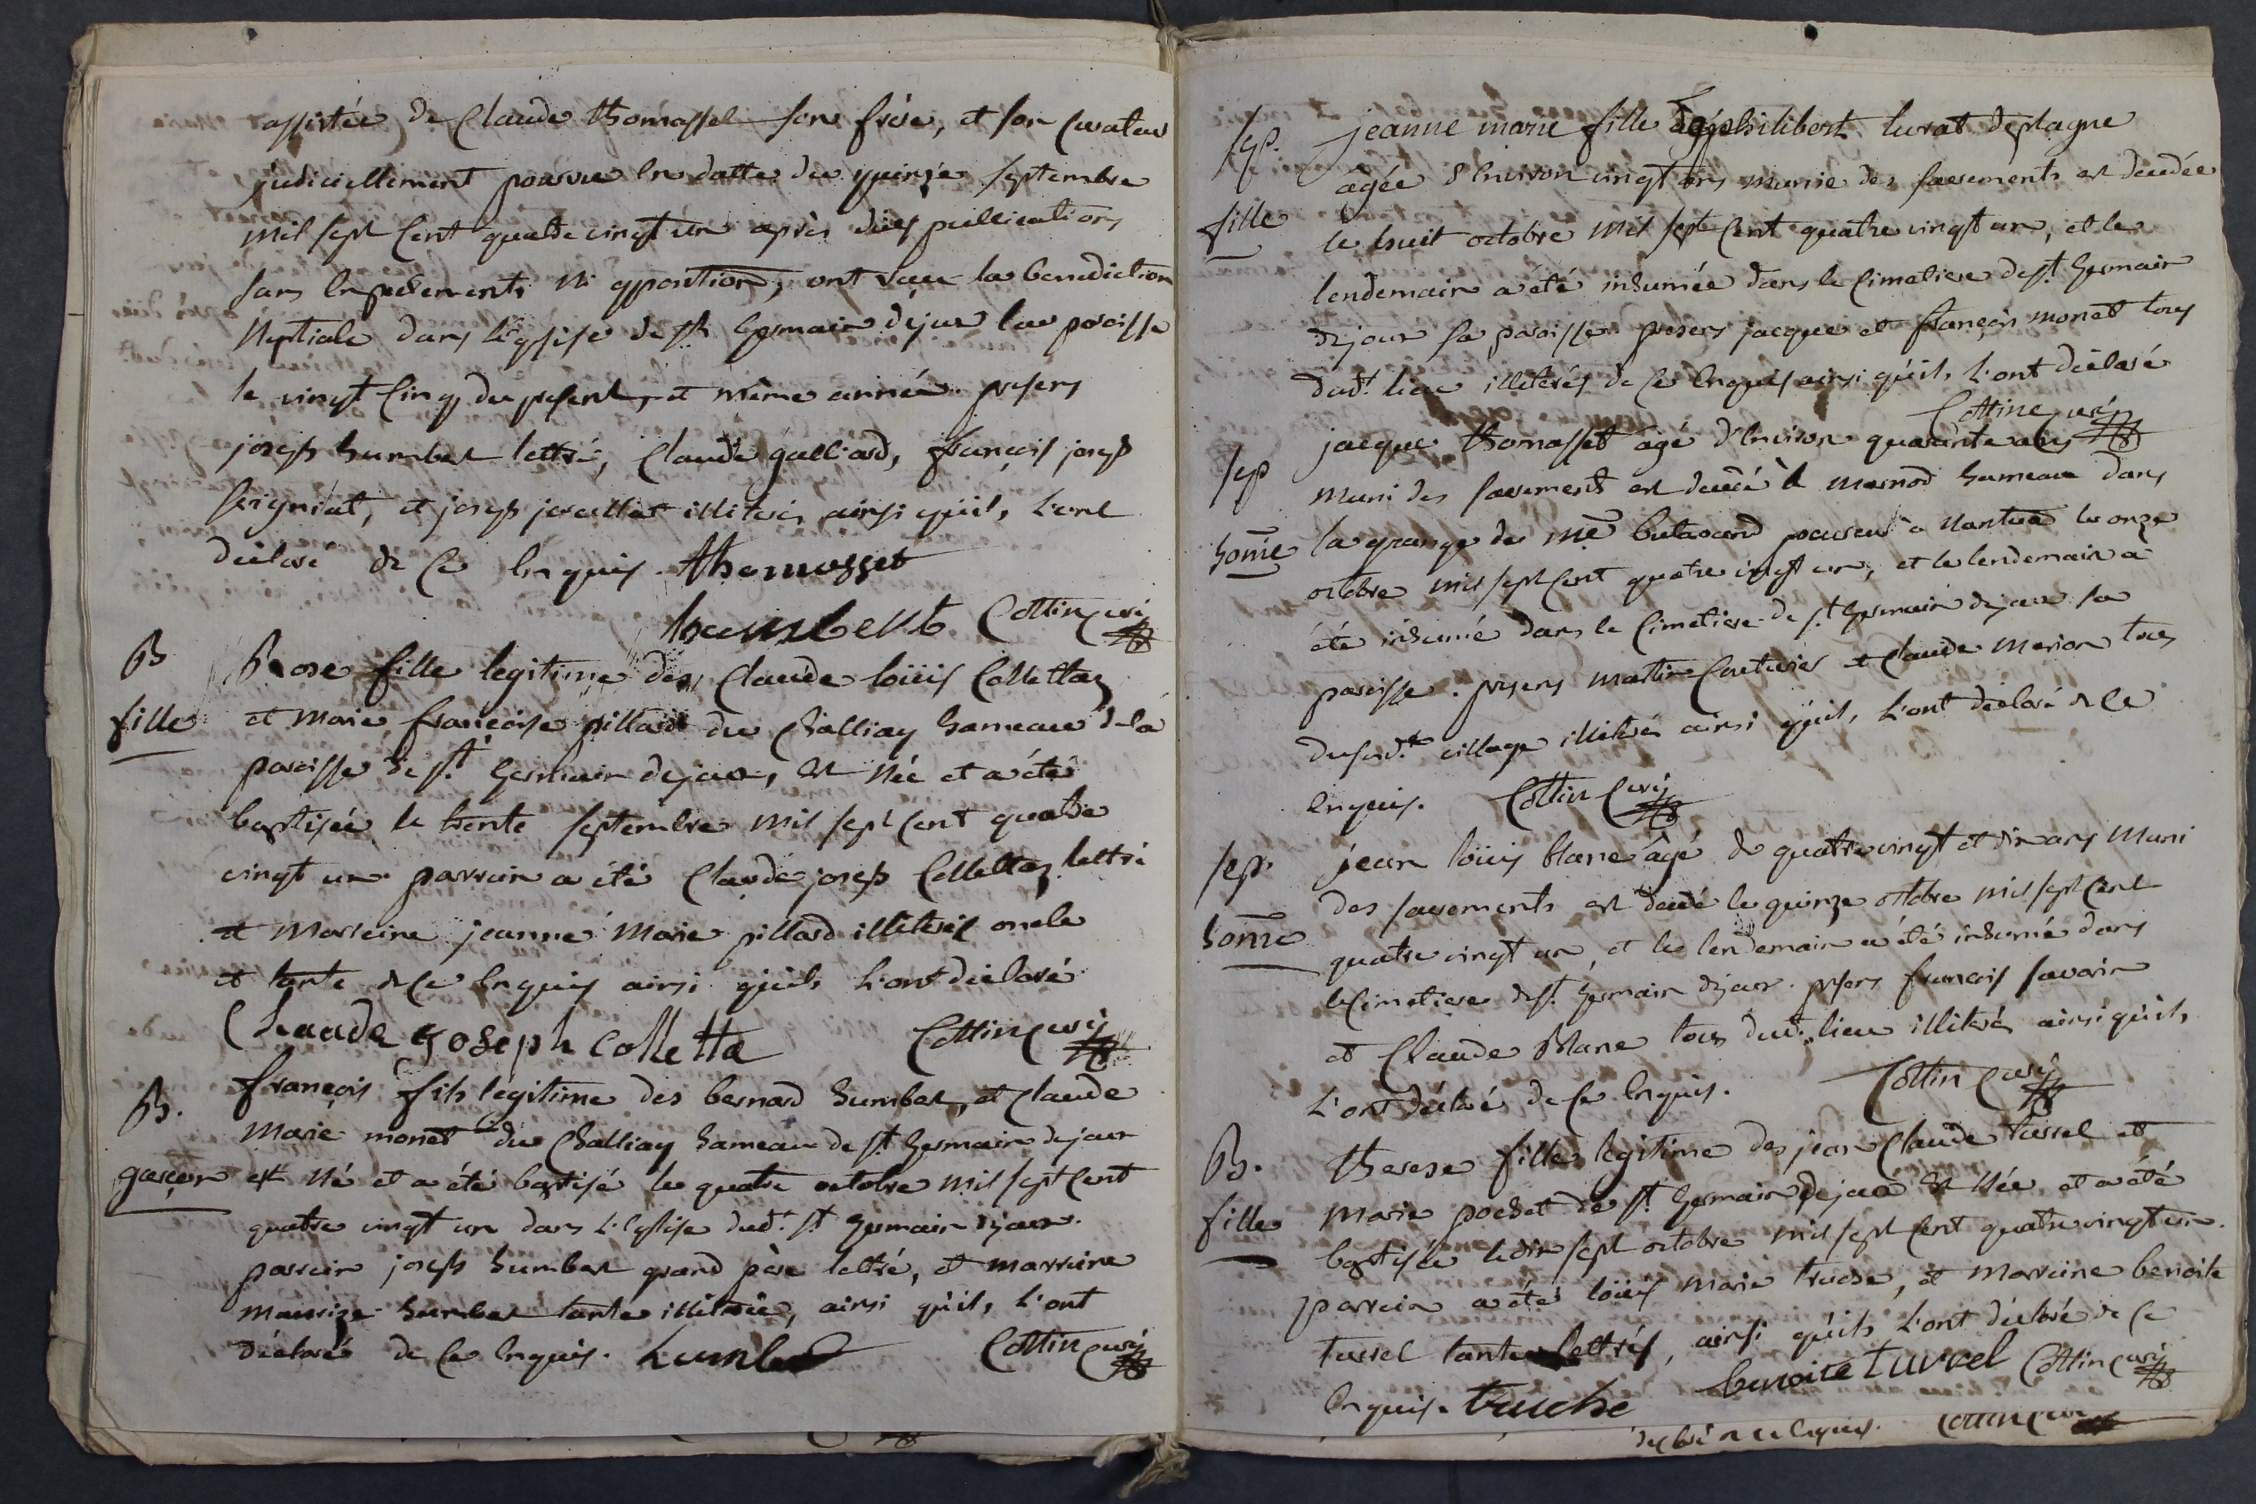 assistée de Claude thomasset son frère, et son Curateur
judiciellement pourvue en datte du quinze septembre
mil sept Cent quatre vingt un après dües publications
sans Empechements ni opposition, ont recu la benediction
Nuptiale dans l'Eglise de st Germain dejoux leur paroisse
le vingt Cinq du present, et même année presens
joseph humbert lettré, Claude galliard, françois joseph
et joseph illiterés ainsi qu'ils l'ont
déclaré de Ce Enquis. thomasset
humbert Cottin Curé
B
fille
Rose fille legitime des Claude loüis Collettaz
et Marie françoise pillard du Challiay hameau de la
paroisse de st Germain dejoux, est née et a été
baptisée le trente septembre mil sept Cent quatre
vingt un. parrain a été Claude joseph Collettaz lettré
et Marreine jeanne Marie pillard illiterés oncle
et tante de Ce Enquis ainsi qu'ils l'ont déclaré
Claude Joseph Colletta Cottin Curé
B.
garçon
françois fils légitime des bernard humbert, et Claude
Marie monet du Challiay hameau de st Germain dejoux
est Né et a été baptisé le quatre octobre mil sept Cent
quatre vingt un dans l'Eglise dudt st Germain dejoux.
parrein joseph humbert grand père lettré, et marreine
maurize humbert tante illiterée, ainsi qu'ils l'ont
déclaré de Ce Enquis. humbert Cottin Curé
sep.
fille
jeanne marie fille de philibert livrat deplagne
âgée d'Environ vingt ans munie des sacrements est decedée
le huit octobre mil sept Cent quatre vingt un, et le
lendemain a été inhumée dans le Cimetiere de st Germain
dejoux sa paroisse presens jacque et françois monet tous
dudt lieu illiterés de Ce Enquis ainsi qu'ils l'ont déclaré
Cottin Curé
sep
home
jacque thomasset âgé d'Environ quarante ans
muni des sacrements est decedé à marnod hameau dans
la grange de me butavand procureur a Nantua le onze
octobre mil sept Cent quatre vingt un, et le lendemain a
été inhumé dans le Cimetiere de st Germain dejoux sa
paroisse. presens martin Couturier et Claude Merion tous
dusudt village illiterés ainsi qu'ils l'ont déclaré de Ce
Enquis. Cottin Curé
sep.
home
jean loüis blanc âgé de quatre vingt et dix ans Muni
des sacrements est decedé le quinze octobre mil sept Cent
quatre vingt un, et le lendemain a été inhumé dans
le Cimetiere de st Germain dejoux. presens francois savarin
et Claude Blanc tous dudt lieu illiterés ainsi qu'ils
l'ont déclaré de Ce Enquis. Cottin Curé
B.
fille
therese fille legitime des jean Claude turrel et
Marie pochet de st Germain dejoux est Née et a été
baptisée le dix sept octobre mil sept Cent quatre vingt un.
parrein a été loüis marie truche, et Marreine benoite
turrel tante lettrés, ainsi qu'ils l'ont déclaré de Ce
Enquis. truche benoite turrel Cottin Curé
déclaré de Ce Enquis. Cottin Curé